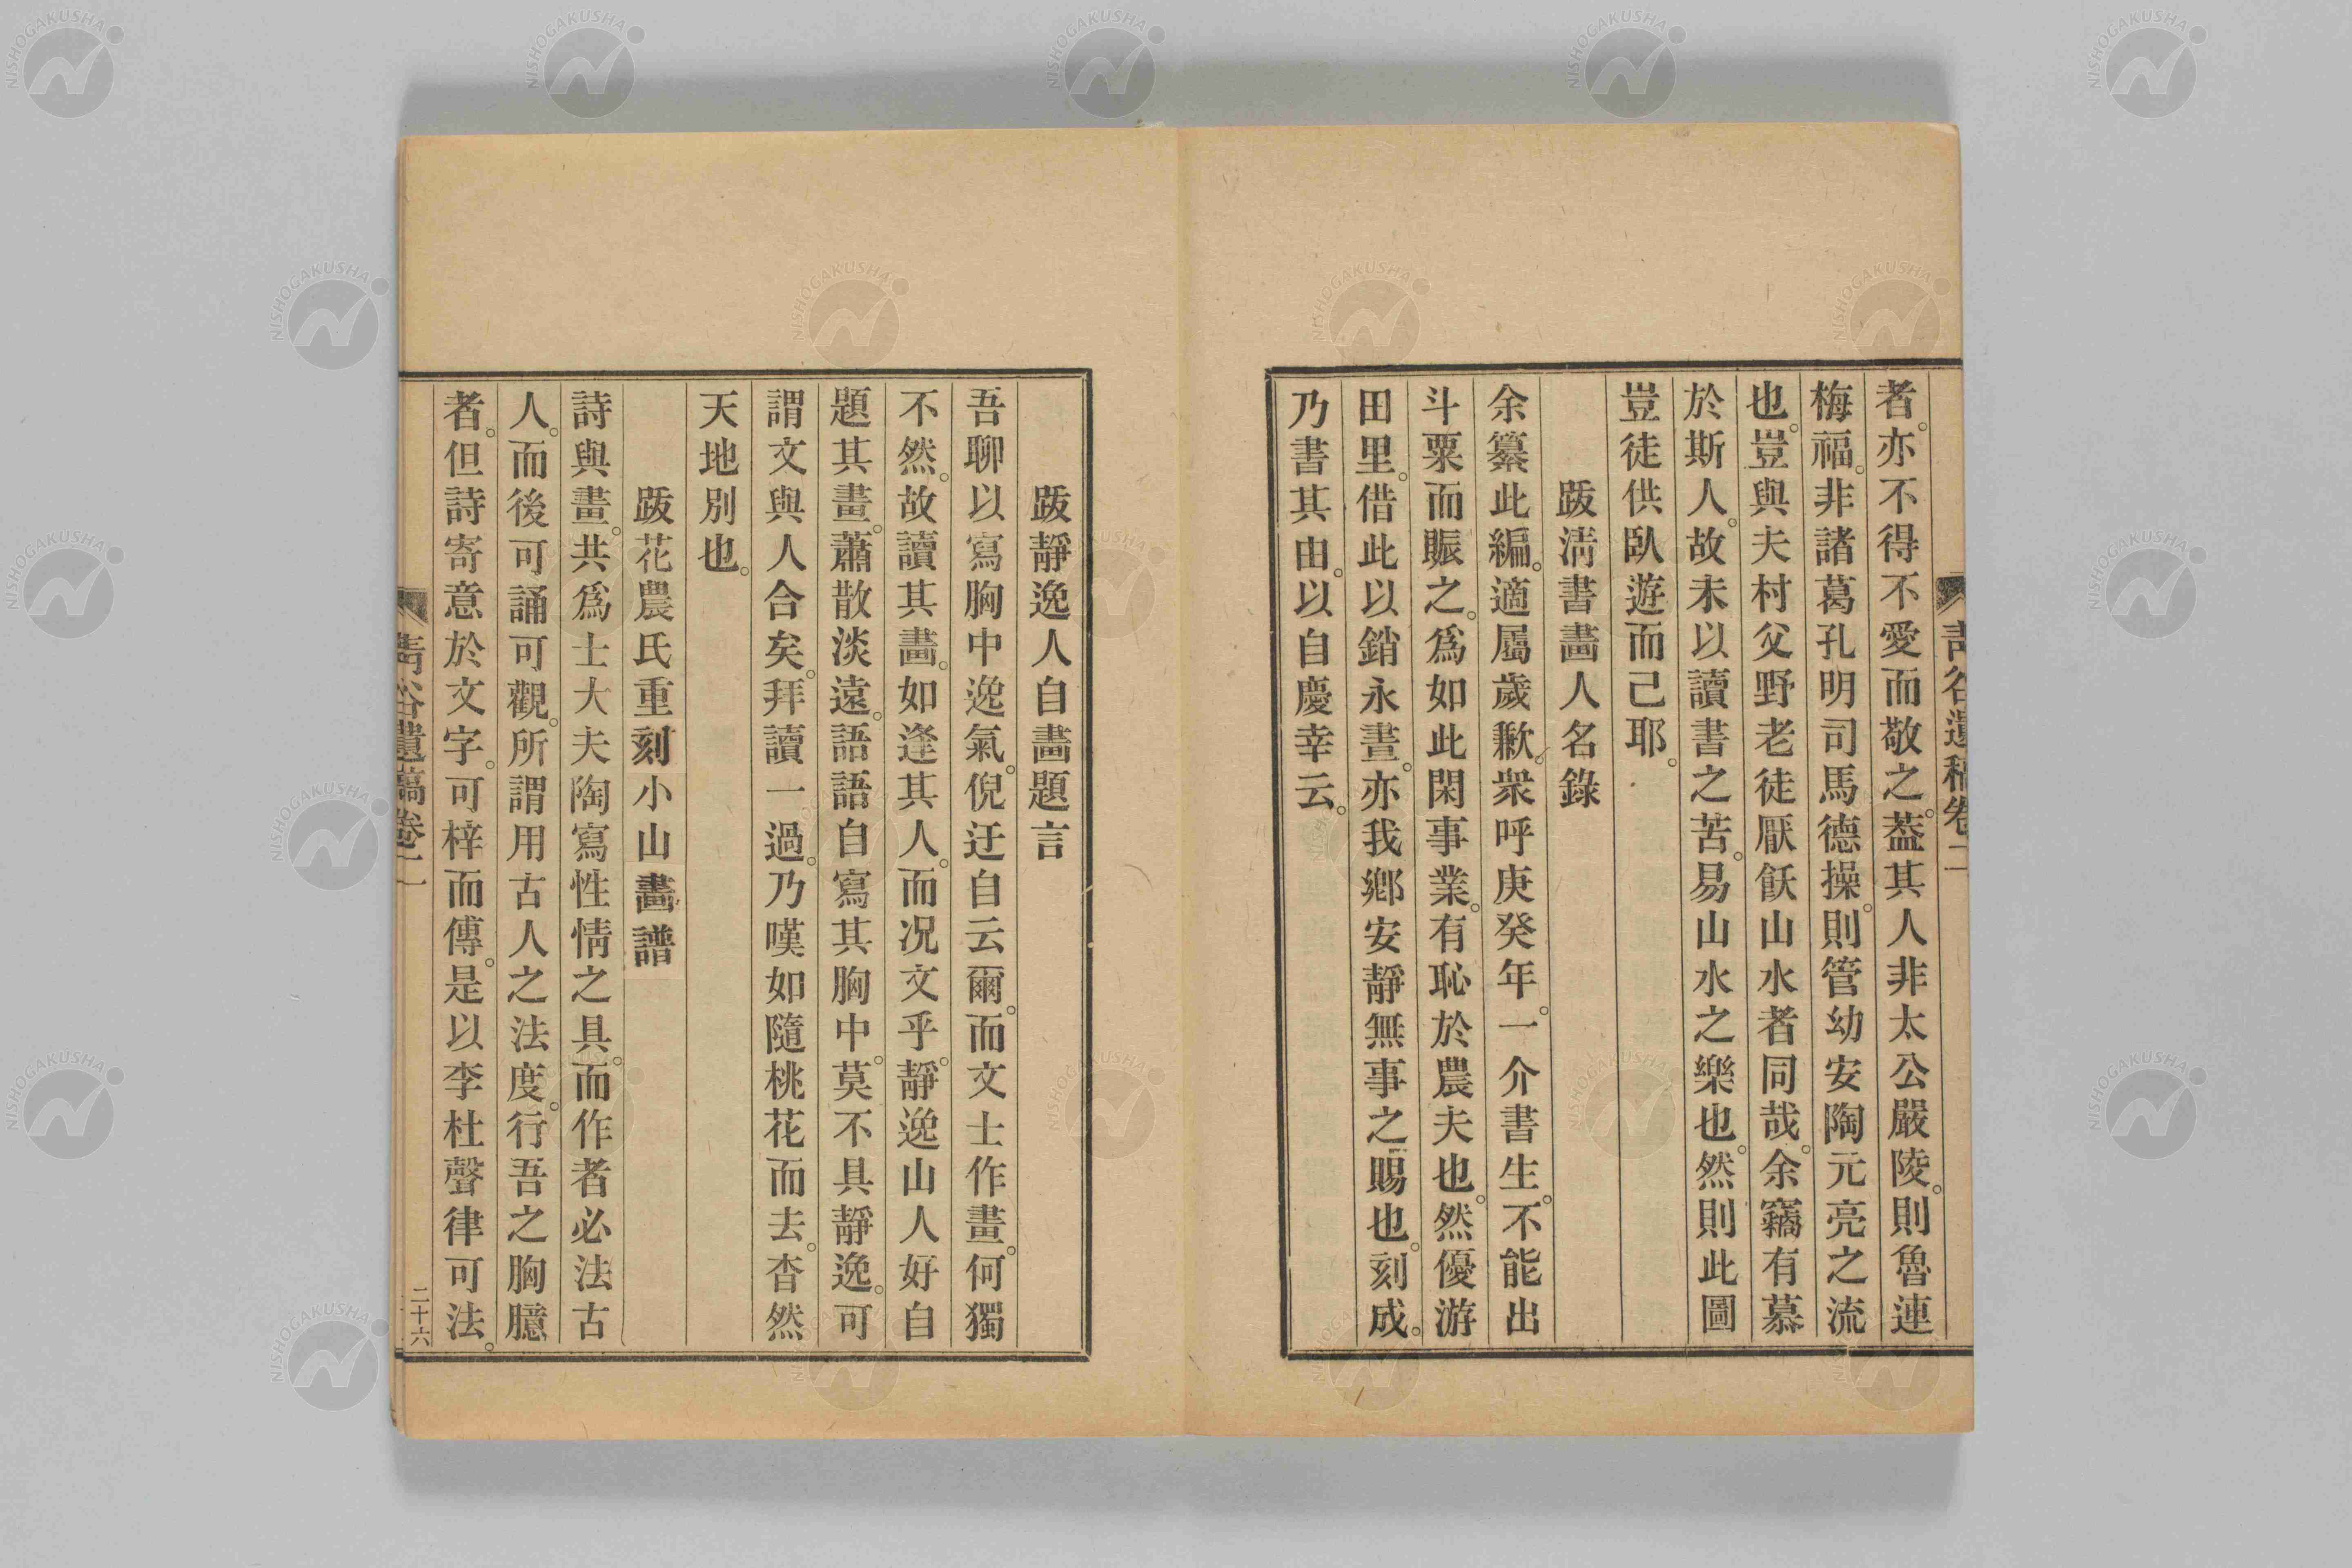 者。亦不得不愛而敬之。蓋其人非太公嚴陵。則魯連
梅福。非諸葛孔明司馬德操。則管幼安陶元亮之流
也。豈與夫村父野老徒厭飫山水者同哉。余竊有慕
於斯人。故未以讀書之苦。易山水之樂也。然則此圖
豈徒供臥遊而己耶。
跋淸書畫人名錄
余纂此編。適屬歲歉。衆呼庚癸年。一介書生。不能出
斗粟而賑之。爲如此閑事業。有恥於農夫也。然優游
田里。借此以銷永晝。亦我鄕安靜無事之賜也。刻成。
乃書其由。以自慶幸云。
跋靜逸人自畫題言
吾聊以寫胸中逸氣。倪迂自云爾。而文士作畫。何獨
不然。故讀其畫。如逢其人。而况文乎。靜逸山人好自
題其畫。蕭散淡遠。語語自寫其胸中。莫不具靜逸。可
謂文與人合矣。拜讀一過。乃嘆如隨桃花而去。杳然
天地別也。
跋花農氏重刻小山畫譜
詩與畫。共爲士大夫陶寫性情之具。而作者必法古
人。而後可誦可觀。所謂用古人之法度。行吾之胸臆
者。但詩寄意於文字。可梓而傳。是以李杜聲律可法。
靑谷遺稿卷二
二十六
NISHOGAKUSHA